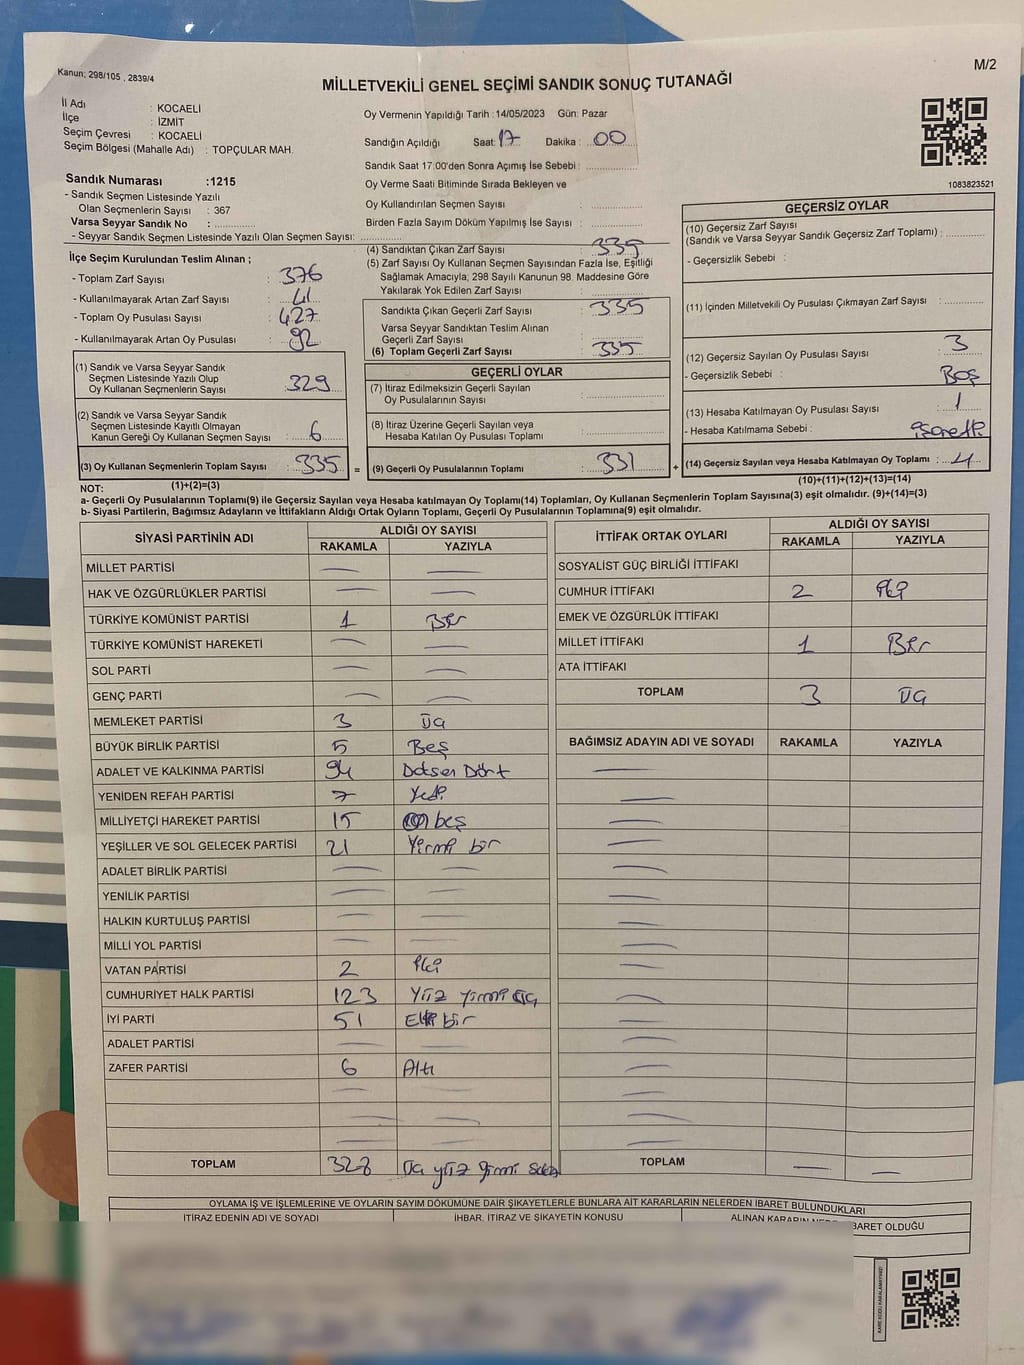 Kanun; 298/105 , 2839/4
M/2
MİLLETVEKİLİ GENEL SEÇİMİ SANDIK SONUÇ TUTANAĞI
İl Adı : KOCAELİ
İlçe : İZMİT
Seçim Çevresi : KOCAELİ
Seçim Bölgesi (Mahalle Adı) : TOPÇULAR MAH.
Sandık Numarası :1215
- Sandık Seçmen Listesinde Yazılı
Olan Seçmenlerin Sayısı : 367
Varsa Seyyar Sandık No :
- Seyyar Sandık Seçmen Listesinde Yazılı Olan Seçmen Sayısı:
Oy Vermenin Yapıldığı Tarih :14/05/2023 Gün: Pazar
Sandığın Açıldığı Saat: 17 Dakika : 00
Sandık Saat 17:00'den Sonra Açımış İse Sebebi :
Oy Verme Saati Bitiminde Sırada Bekleyen ve
Oy Kullandırılan Seçmen Sayısı :
Birden Fazla Sayım Döküm Yapılmış İse Sayısı :
1083823521
İlçe Seçim Kurulundan Teslim Alınan ;
- Toplam Zarf Sayısı : 376
- Kullanılmayarak Artan Zarf Sayısı : 41
- Toplam Oy Pusulası Sayısı : 427
- Kullanılmayarak Artan Oy Pusulası : 92
(1) Sandık ve Varsa Seyyar Sandık
Seçmen Listesinde Yazılı Olup
Oy Kullanan Seçmenlerin Sayısı : 329
(2) Sandık ve Varsa Seyyar Sandık
Seçmen Listesinde Kayıtlı Olmayan
Kanun Gereği Oy Kullanan Seçmen Sayısı : 6
(3) Oy Kullanan Seçmenlerin Toplam Sayısı : 335 =
(1)+(2)=(3)
(4) Sandıktan Çıkan Zarf Sayısı : 335
(5) Zarf Sayısı Oy Kullanan Seçmen Sayısından Fazla İse, Eşitliği
Sağlamak Amacıyla, 298 Sayılı Kanunun 98. Maddesine Göre
Yakılarak Yok Edilen Zarf Sayısı :
Sandıkta Çıkan Geçerli Zarf Sayısı : 335
Varsa Seyyar Sandıktan Teslim Alınan
Geçerli Zarf Sayısı :
(6) Toplam Geçerli Zarf Sayısı : 335
GEÇERLİ OYLAR
(7) İtiraz Edilmeksizin Geçerli Sayılan
Oy Pusulalarının Sayısı :
(8) İtiraz Üzerine Geçerli Sayılan veya
Hesaba Katılan Oy Pusulası Toplamı :
(9) Geçerli Oy Pusulalarının Toplamı : 331 +
GEÇERSİZ OYLAR
(10) Geçersiz Zarf Sayısı
(Sandık ve Varsa Seyyar Sandık Geçersiz Zarf Toplamı) :
- Geçersizlik Sebebi :
(11) İçinden Milletvekili Oy Pusulası Çıkmayan Zarf Sayısı :
(12) Geçersiz Sayılan Oy Pusulası Sayısı : 3
- Geçersizlik Sebebi : Boş
(13) Hesaba Katılmayan Oy Pusulası Sayısı : 1
- Hesaba Katılmama Sebebi : işaretli
(14) Geçersiz Sayılan veya Hesaba Katılmayan Oy Toplamı : 4
(10)+(11)+(12)+(13)=(14)
NOT:
a- Geçerli Oy Pusulalarının Toplamı(9) ile Geçersiz Sayılan veya Hesaba katılmayan Oy Toplamı(14) Toplamları, Oy Kullanan Seçmenlerin Toplam Sayısına(3) eşit olmalıdır. (9)+(14)=(3)
b- Siyasi Partilerin, Bağımsız Adayların ve İttifakların Aldığı Ortak Oyların Toplamı, Geçerli Oy Pusulalarının Toplamına(9) eşit olmalıdır.
SİYASİ PARTİNİN ADI ALDIĞI OY SAYISI
RAKAMLA YAZIYLA
MİLLET PARTİSİ
HAK VE ÖZGÜRLÜKLER PARTİSİ
TÜRKİYE KOMÜNİST PARTİSİ 1 Bir
TÜRKİYE KOMÜNİST HAREKETİ
SOL PARTİ
GENÇ PARTİ
MEMLEKET PARTİSİ 3 Üç
BÜYÜK BİRLİK PARTİSİ 5 Beş
ADALET VE KALKINMA PARTİSİ 94 Doksan Dört
YENİDEN REFAH PARTİSİ 7 Yedi
MİLLİYETÇİ HAREKET PARTİSİ 15 on beş
YEŞİLLER VE SOL GELECEK PARTİSİ 21 Yirmi bir
ADALET BİRLİK PARTİSİ
YENİLİK PARTİSİ
HALKIN KURTULUŞ PARTİSİ
MİLLİ YOL PARTİSİ
VATAN PARTİSİ 2 iki
CUMHURİYET HALK PARTİSİ 123 Yüz yirmi üç
İYİ PARTİ 51 Elli bir
ADALET PARTİSİ
ZAFER PARTİSİ 6 Altı
TOPLAM 328 Üç yüz yirmi sekiz
İTTİFAK ORTAK OYLARI ALDIĞI OY SAYISI
RAKAMLA YAZIYLA
SOSYALİST GÜÇ BİRLİĞİ İTTİFAKI
CUMHUR İTTİFAKI 2 iki
EMEK VE ÖZGÜRLÜK İTTİFAKI
MİLLET İTTİFAKI 1 Bir
ATA İTTİFAKI
TOPLAM 3 Üç
BAĞIMSIZ ADAYIN ADI VE SOYADI RAKAMLA YAZIYLA
TOPLAM
OYLAMA İŞ VE İŞLEMLERİNE VE OYLARIN SAYIM DÖKÜMÜNE DAİR ŞİKAYETLERLE BUNLARA AİT KARARLARIN NELERDEN İBARET BULUNDUKLARI
İTİRAZ EDENİN ADI VE SOYADI İHBAR, İTİRAZ VE ŞİKAYETİN KONUSU ALINAN KARARIN BARET OLDUĞU